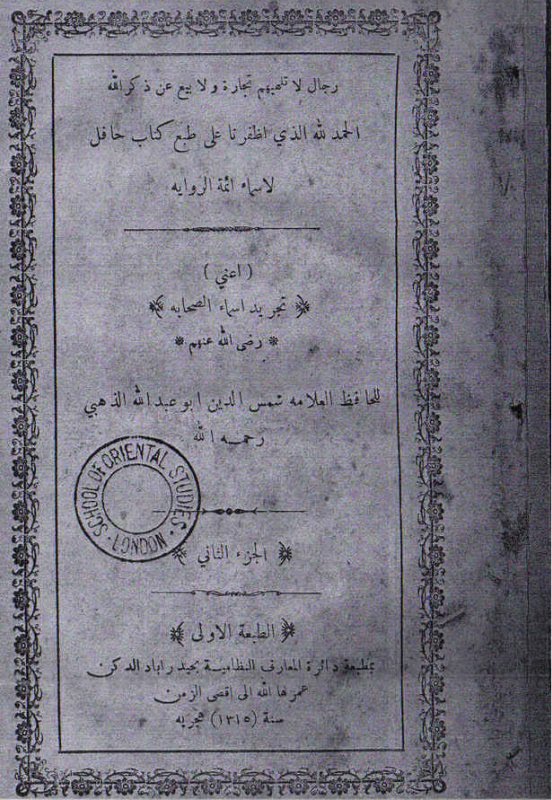 رجال لا تلهيهم تجارة ولا بيع عن ذكر الله
الحمد لله الذي اظفرنا على طبع كتاب حافل
لاسماء ائمة الروايه
( اعني )
تجريد اسماء الصحابه
* رضى الله عنهم *
للحافظ العلامه شمس الدين ابو عبد الله الذهبي
رحمه الله
SCHOOL OF ORIENTAL STUDIES · LONDON ·
الجزء الثاني
الطبعة الاولى
بمطبعة دائرة المعارف النظامية بحيدراباد الدكن
عمرها الله الى اقصى الزمن
سنة (١٣١٥) هجريه